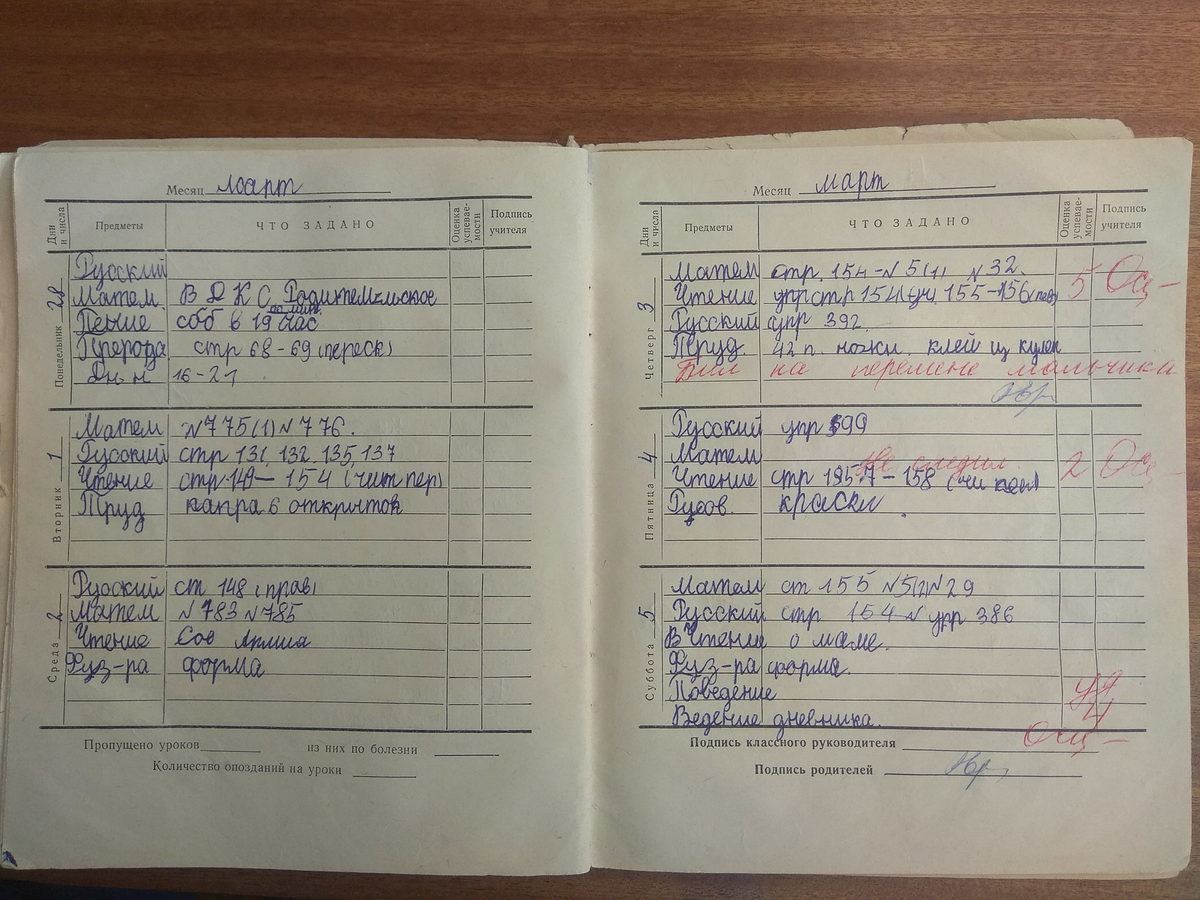 Месяц март
Дни и числа Предметы ЧТО ЗАДАНО Оценка успевае-мости Подпись учителя
Понедельник 28
Русский
Матем. В Д К С Родительское
Пение соб в 19 час
Природа стр 68-69 (переск)
16-21
Вторник 1
Матем №775(1) №776.
Русский стр 131, 132, 135, 137
Чтение стр 149-154 (чит пер)
Труд напра 6 открыток
Среда 2
Русский ст 148 (прав)
Матем №783 №785
Чтение Сов Армия
Фуз-ра форма
Пропущено уроков из них по болезни
Количество опозданий на уроки
Месяц март
Дни и числа Предметы ЧТО ЗАДАНО Оценка успевае-мости Подпись учителя
Четверг 3
Матем стр. 154-№5(1) №32.
Чтение упр стр 154 155-156 5
Русский упр 392.
Труд. ножки клей
Бил на перемене мальчика
Пятница 4
Русский упр 399
Матем Не следил 2
Чтение стр 1957-158
Рисов. краски
Суббота 5
Матем ст 155 №5(2) №29
Русский стр 154 № упр 386
В Чтение о маме.
Фуз-ра форма.
Поведение уд
Ведение дневника. 4
Подпись классного руководителя
Подпись родителей